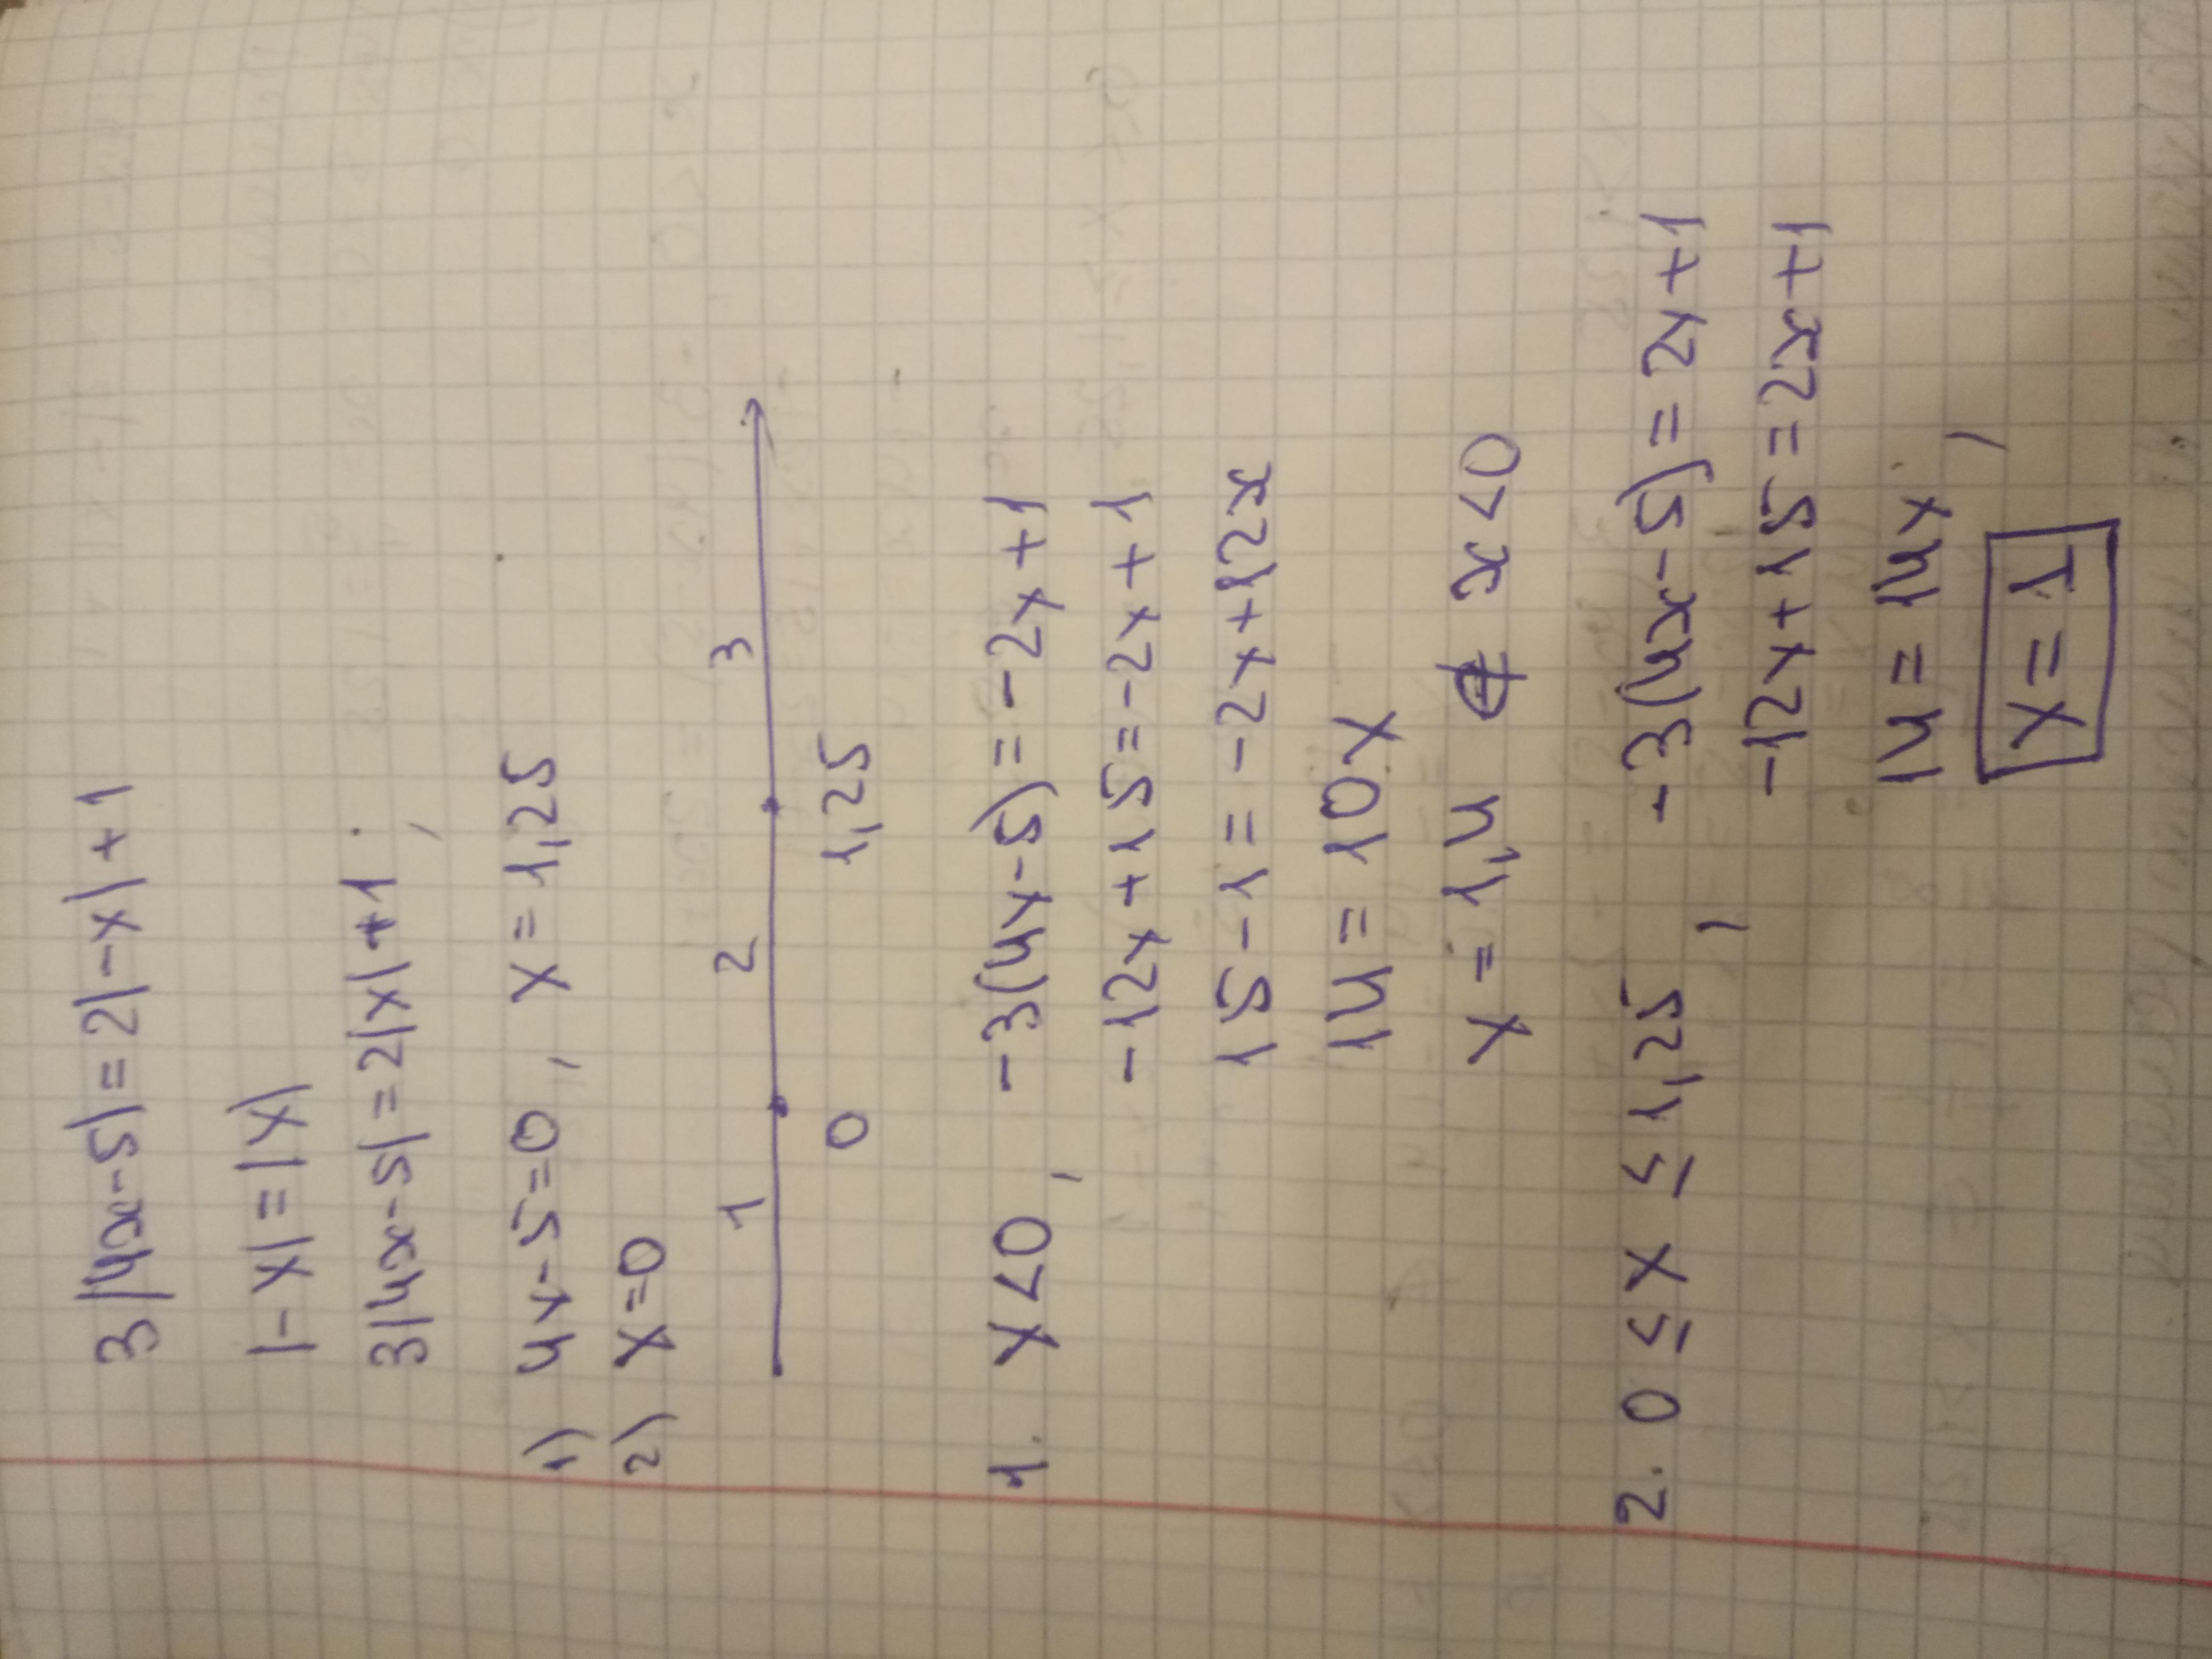 3|4x-5|=2|-x|+1
|-x|=|x|
3|4x-5|=2|x|+1;
1) 4x-5=0, x=1,25
2) x=0
1 2 3
0 1,25
1. x<0, -3(4x-5)=-2x+1
-12x+15=-2x+1
15-1=-2x+12x
14=10x
x=1,4 ∉ x<0
2. 0≤x≤1,25, -3(4x-5)=2x+1
-12x+15=2x+1
14=14x,
x=1